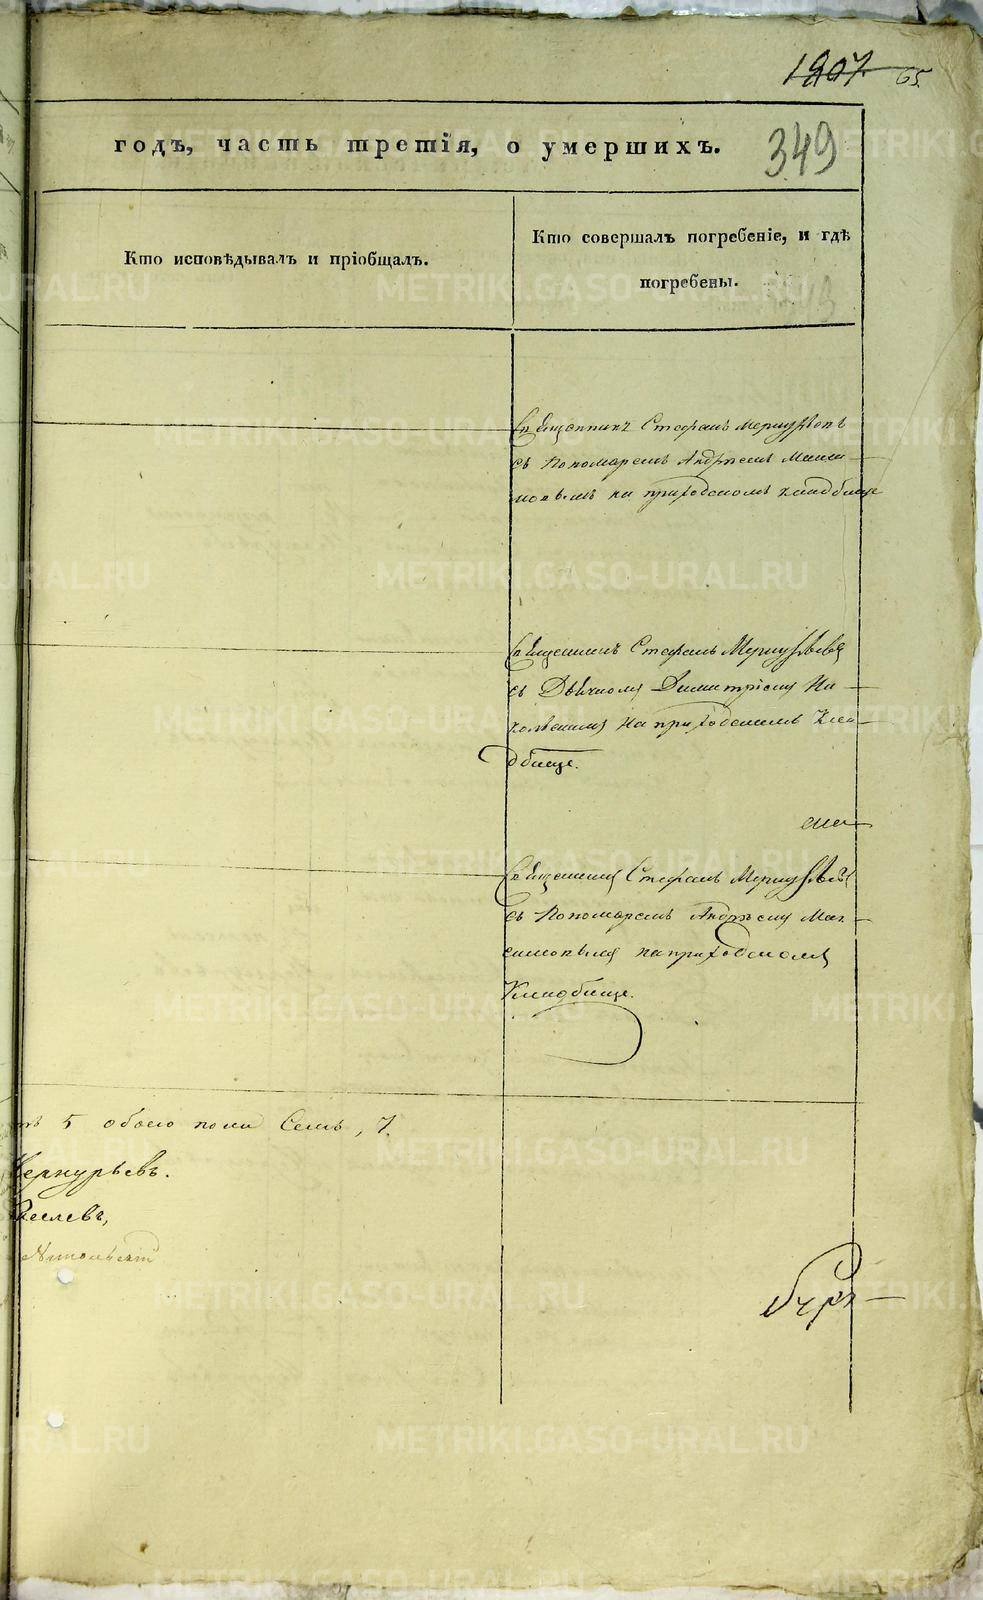 1207. 65.
годъ, часть третія, о умершихъ. 349
Кто исповѣдывалъ и пріобщалъ.
Кто совершалъ погребеніе, и гдѣ
погребены.
Священникъ Стефанъ Меркурьевъ
съ Пономаремъ Андреемъ Макси-
мовымъ на приходскомъ кладбище
Священникъ Стефанъ Меркурьевъ
съ Дьячкомъ Димитріемъ Ни
на приходскомъ Кла-
дбище.
Священникъ Стефанъ Меркурьевъ
съ Пономаремъ Андреемъ Мак-
симовымъ на приходскомъ
Кладбище.
5 обоего пола Семь, 7.
Меркурьевъ.
METRIKI.GASO-URAL.RU